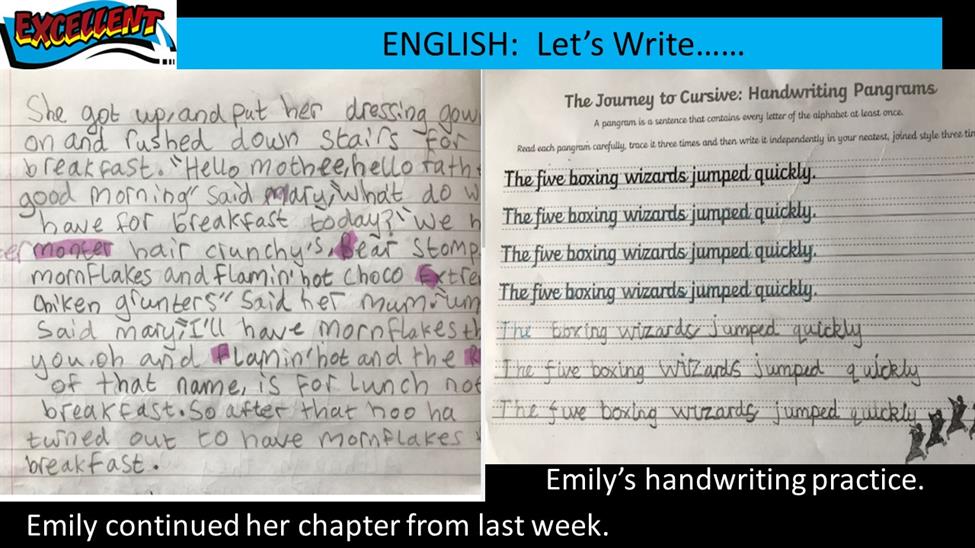 EXCELLENT
ENGLISH: Let's Write……
She got up, and put her dressing gow
on and rushed down stairs for
breakfast. "Hello mothee, hello fath
good morning" said mary, "what do w
have for breakfast today?" "we h
monter hair crunchy's, Bear Stomp
mornflakes and flamin' hot choco Extre
Chiken grunters" said her mum. "um
said mary, "I'll have mornflakes th
you, oh and flamin' hot and the
of that name, is for lunch not
breakfast. So after that hoo ha
turned out to have mornflakes
breakfast.
The Journey to Cursive: Handwriting Pangrams
A pangram is a sentence that contains every letter of the alphabet at least once.
Read each pangram carefully, trace it three times and then write it independently in your neatest, joined style three tim
The five boxing wizards jumped quickly.
The five boxing wizards jumped quickly.
The five boxing wizards jumped quickly.
The five boxing wizards jumped quickly.
The boxing wizards jumped quickly
The five boxing wizards jumped quickly
The five boxing wizards jumped quickly
Emily's handwriting practice.
Emily continued her chapter from last week.